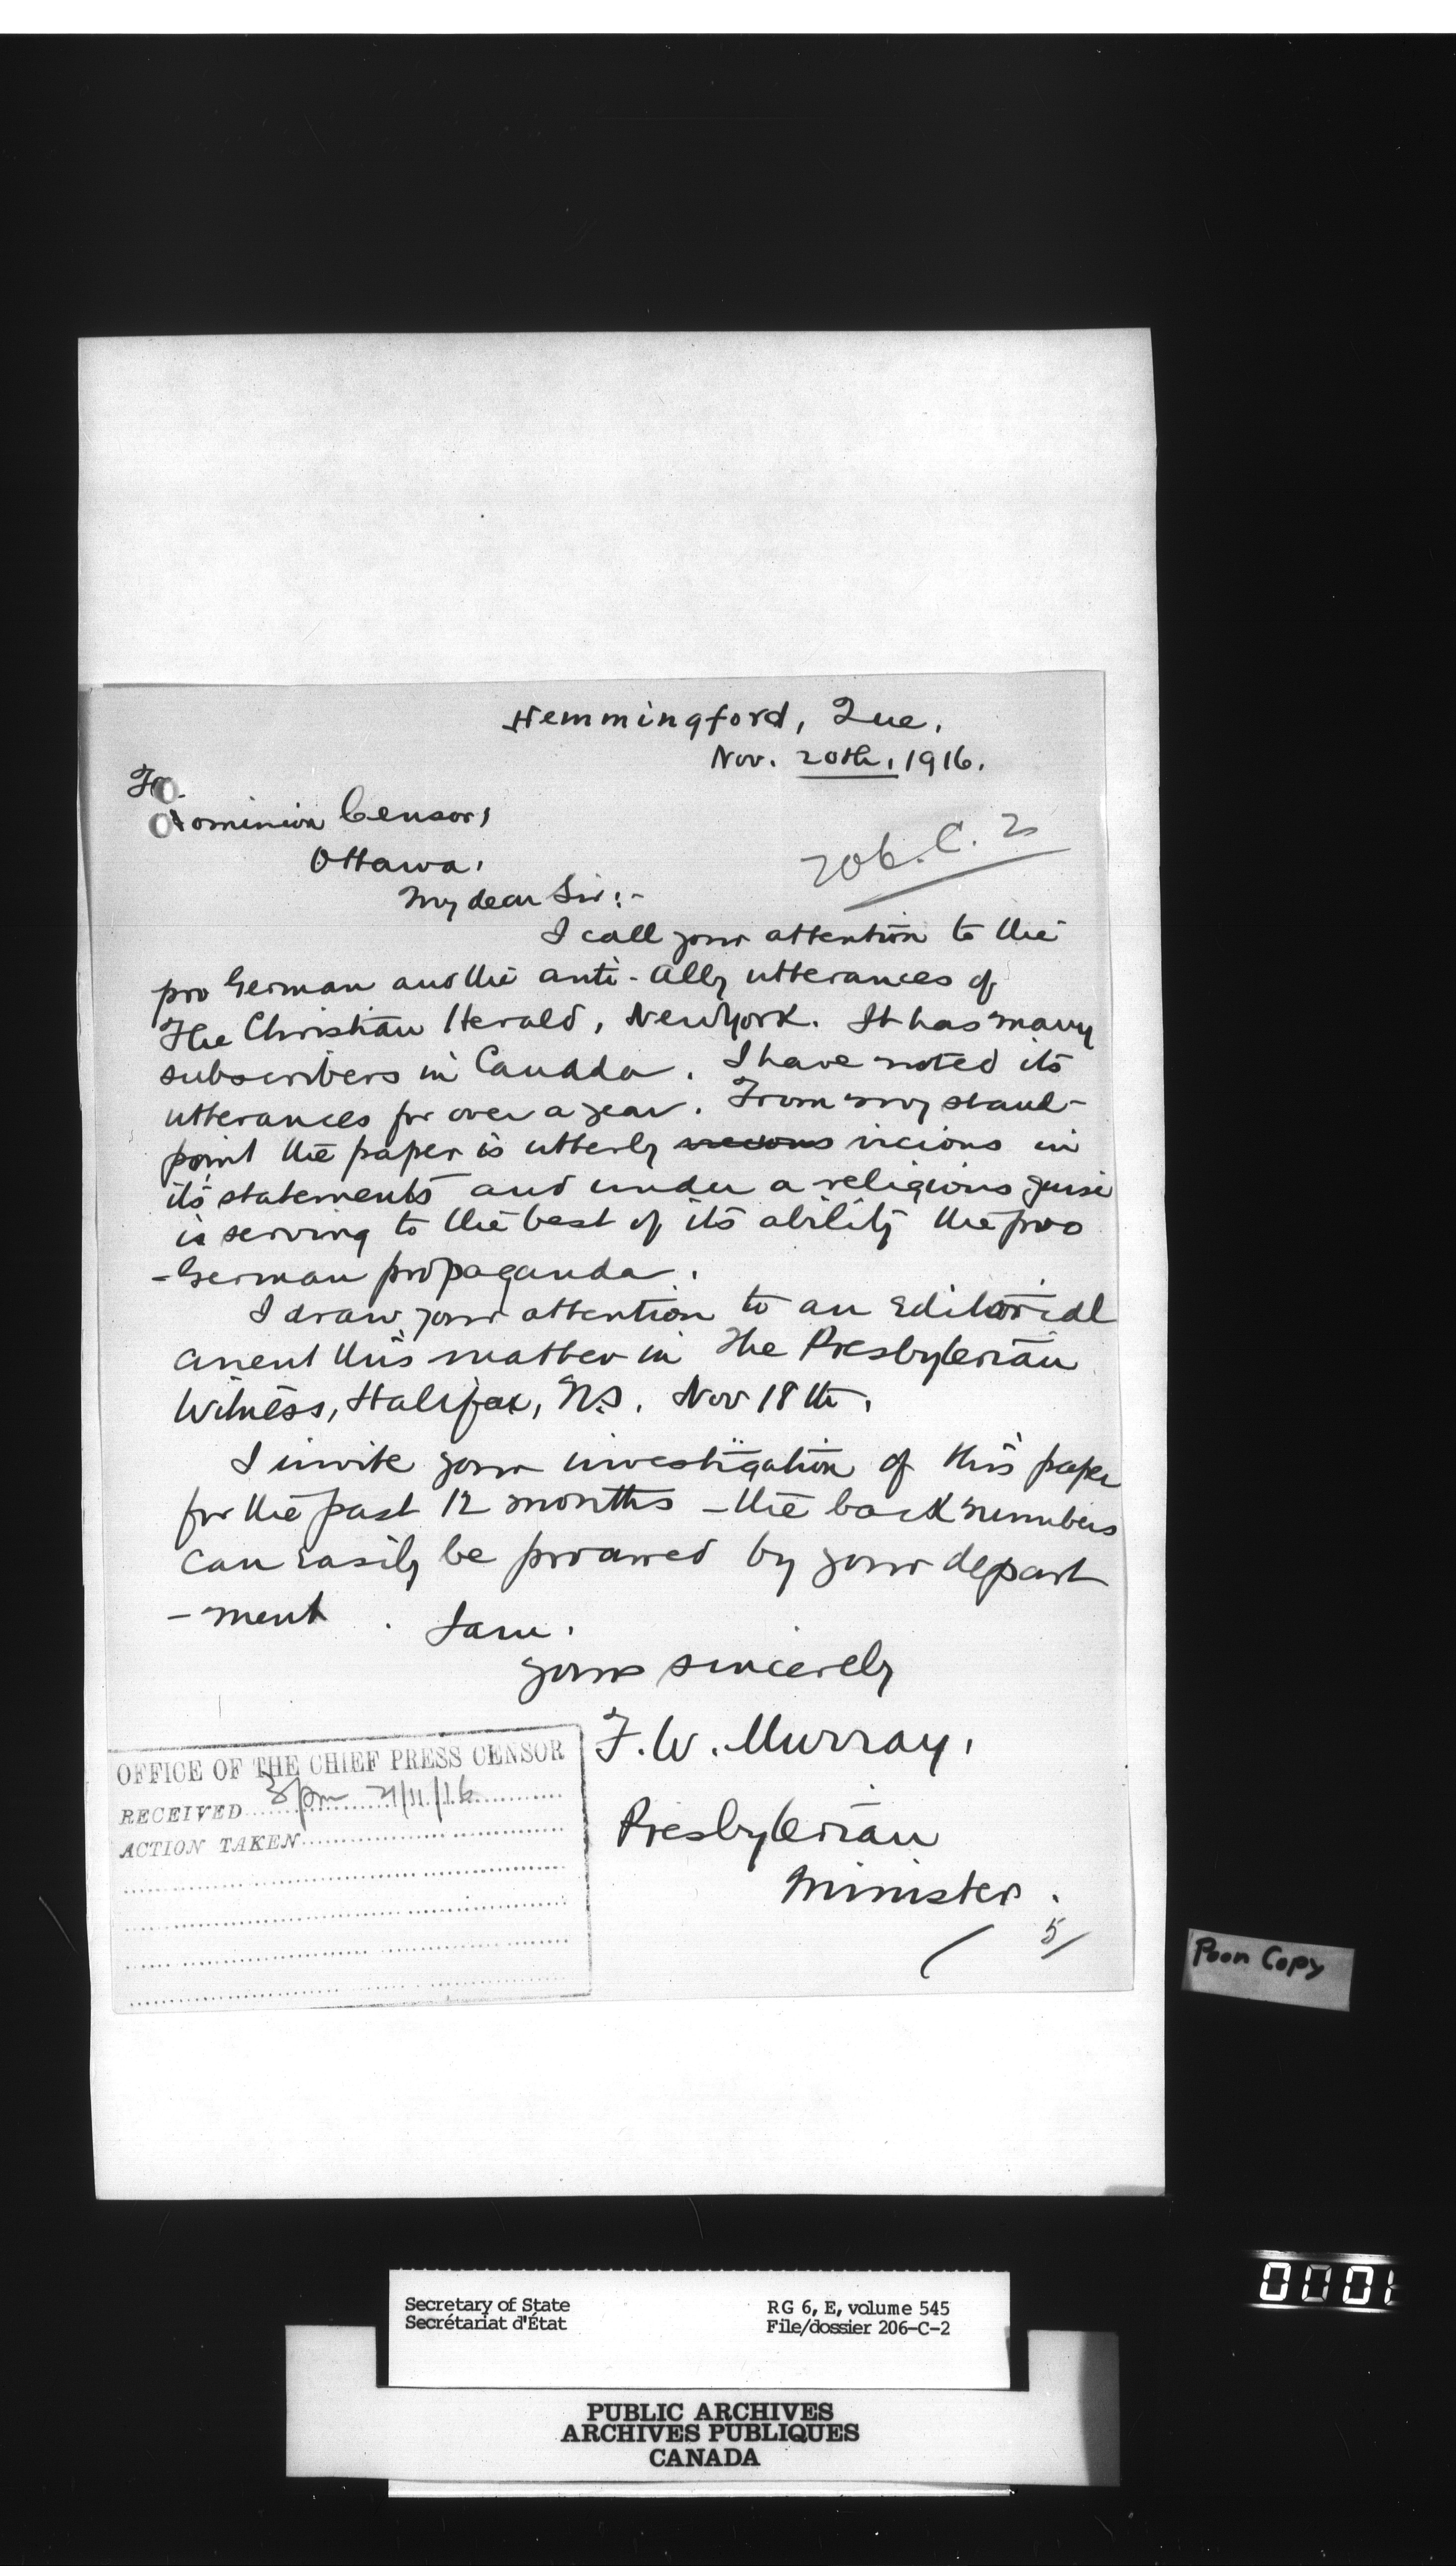 Hemmingford, Que.
Nov. 20th, 1916.
To
Dominion Censor,
Ottawa.
206.C.2
My dear Sir:-
I call your attention to the
pro German and the anti-Ally utterances of
The Christian Herald, New York. It has many
subscribers in Canada. I have noted its
utterances for over a year. From my stand-
point the paper is utterly vicious vicious in
its statements and under a religious guise
is serving to the best of its ability the pro
-German propaganda.
I draw your attention to an Editorial
anent this matter in The Presbyterian
Witness, Halifax, N.S. Nov 18th.
I invite your investigation of this paper
for the past 12 months - the back numbers
can easily be procured by your depart
-ment. I am.
yours sincerely
F.W. Murray,
Presbyterian
Minister.
5/
OFFICE OF THE CHIEF PRESS CENSOR
RECEIVED 3pm 21/11/16
ACTION TAKEN
Poor Copy
0001
Secretary of State
Secrétariat d'État
RG 6, E, volume 545
File/dossier 206-C-2
PUBLIC ARCHIVES
ARCHIVES PUBLIQUES
CANADA